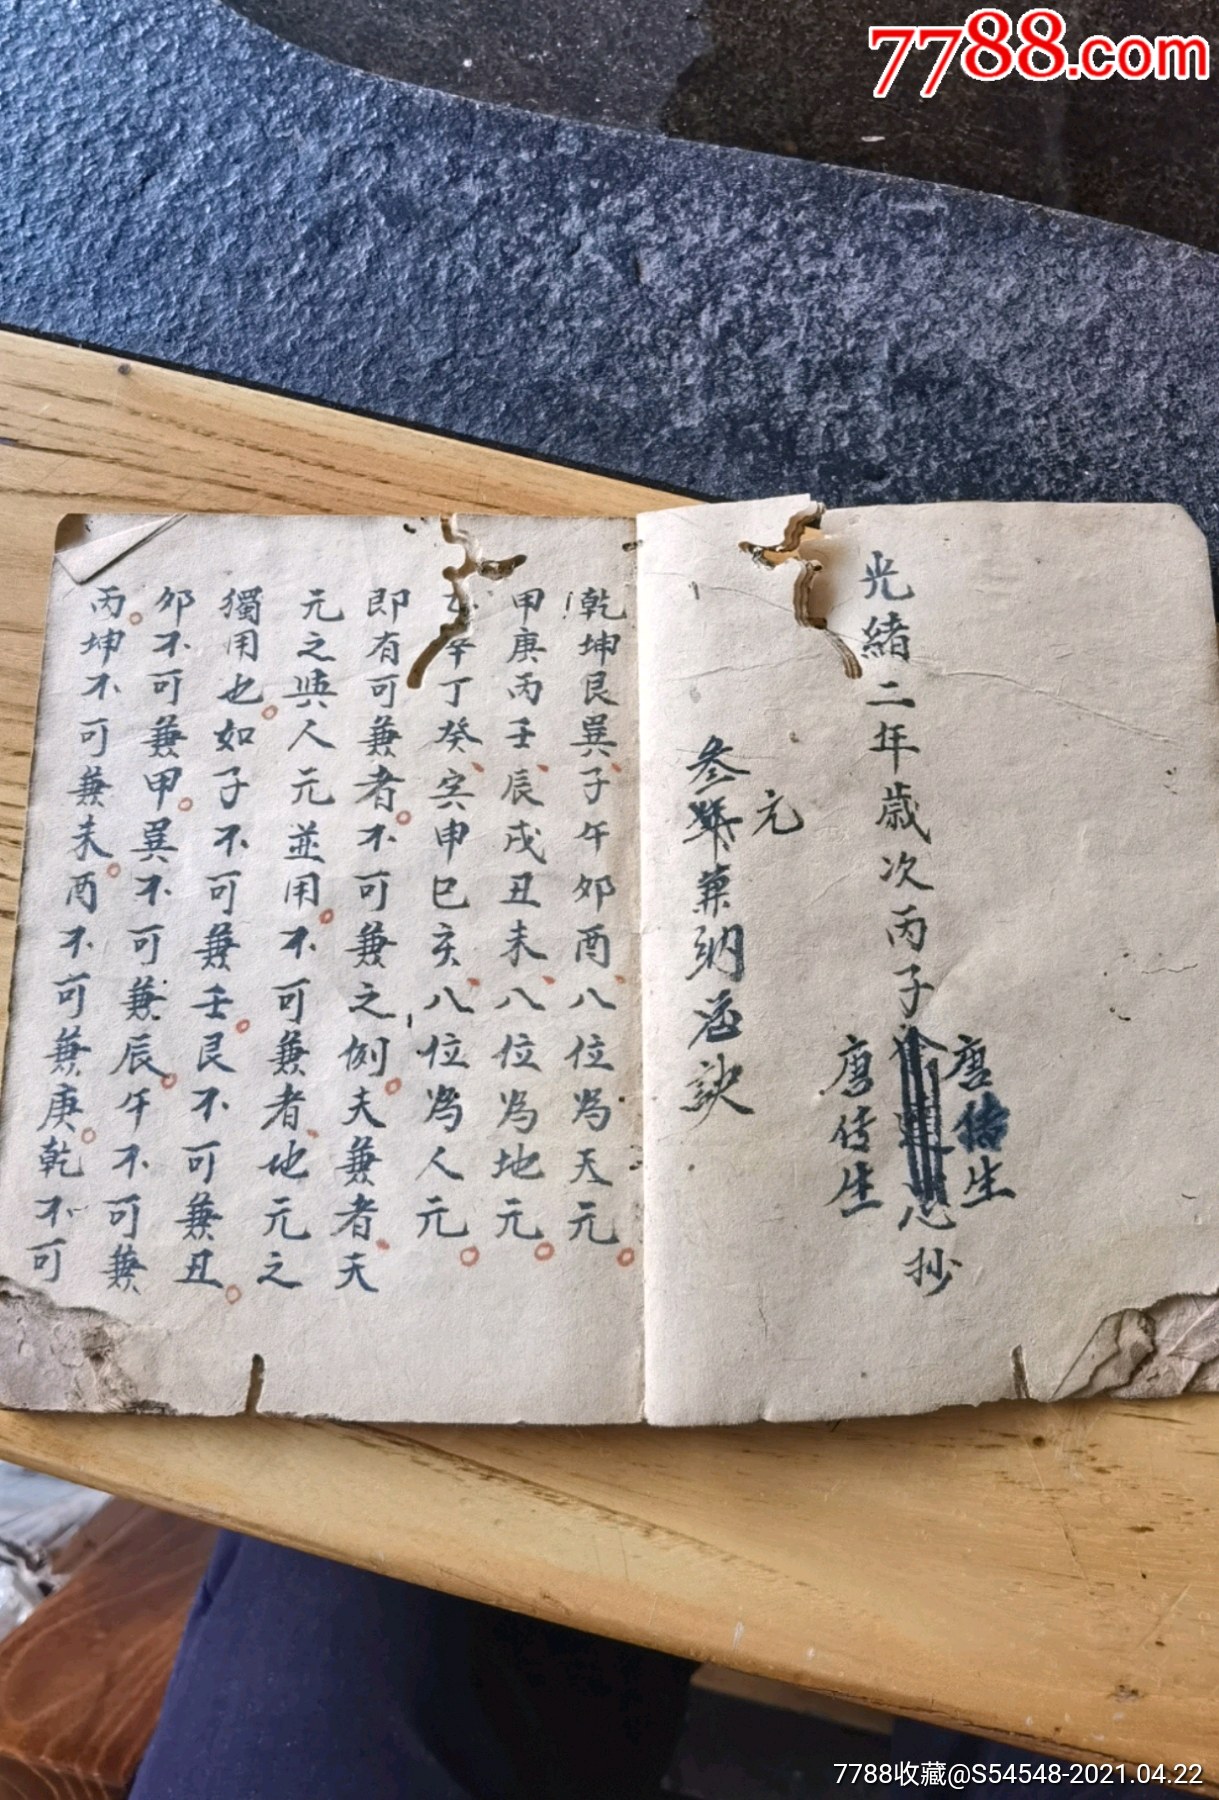 7788.com
光緒二年歲次丙子
抄
唐传生
唐传生
元
叁
兼納
訣
乾坤艮巽子午卯酉八位為天元
甲庚丙壬辰戌丑未八位為地元
辛丁癸寅申巳亥八位為人元
即有可兼者不可兼之例夫兼者天
元之與人元並用不可兼者地元之
獨用也如子不可兼壬艮不可兼丑
卯不可兼甲巽不可兼辰午不可兼
丙坤不可兼未酉不可兼庚乾不可
7788收藏@S54548-2021.04.22